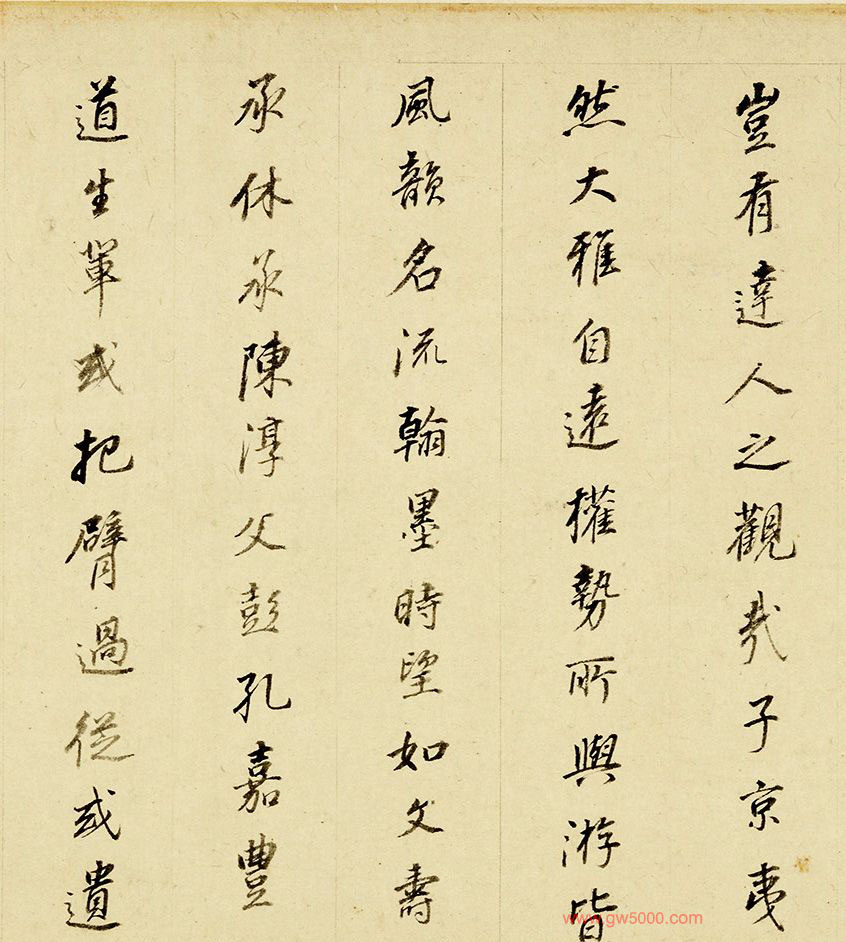 豈有達人之觀哉子京夷
然大雅自遠權勢所與游皆
風韻名流翰墨時望如文壽
承休承陳淳父彭孔嘉豐
道生輩或把臂過從或遺
www.gw5000.com